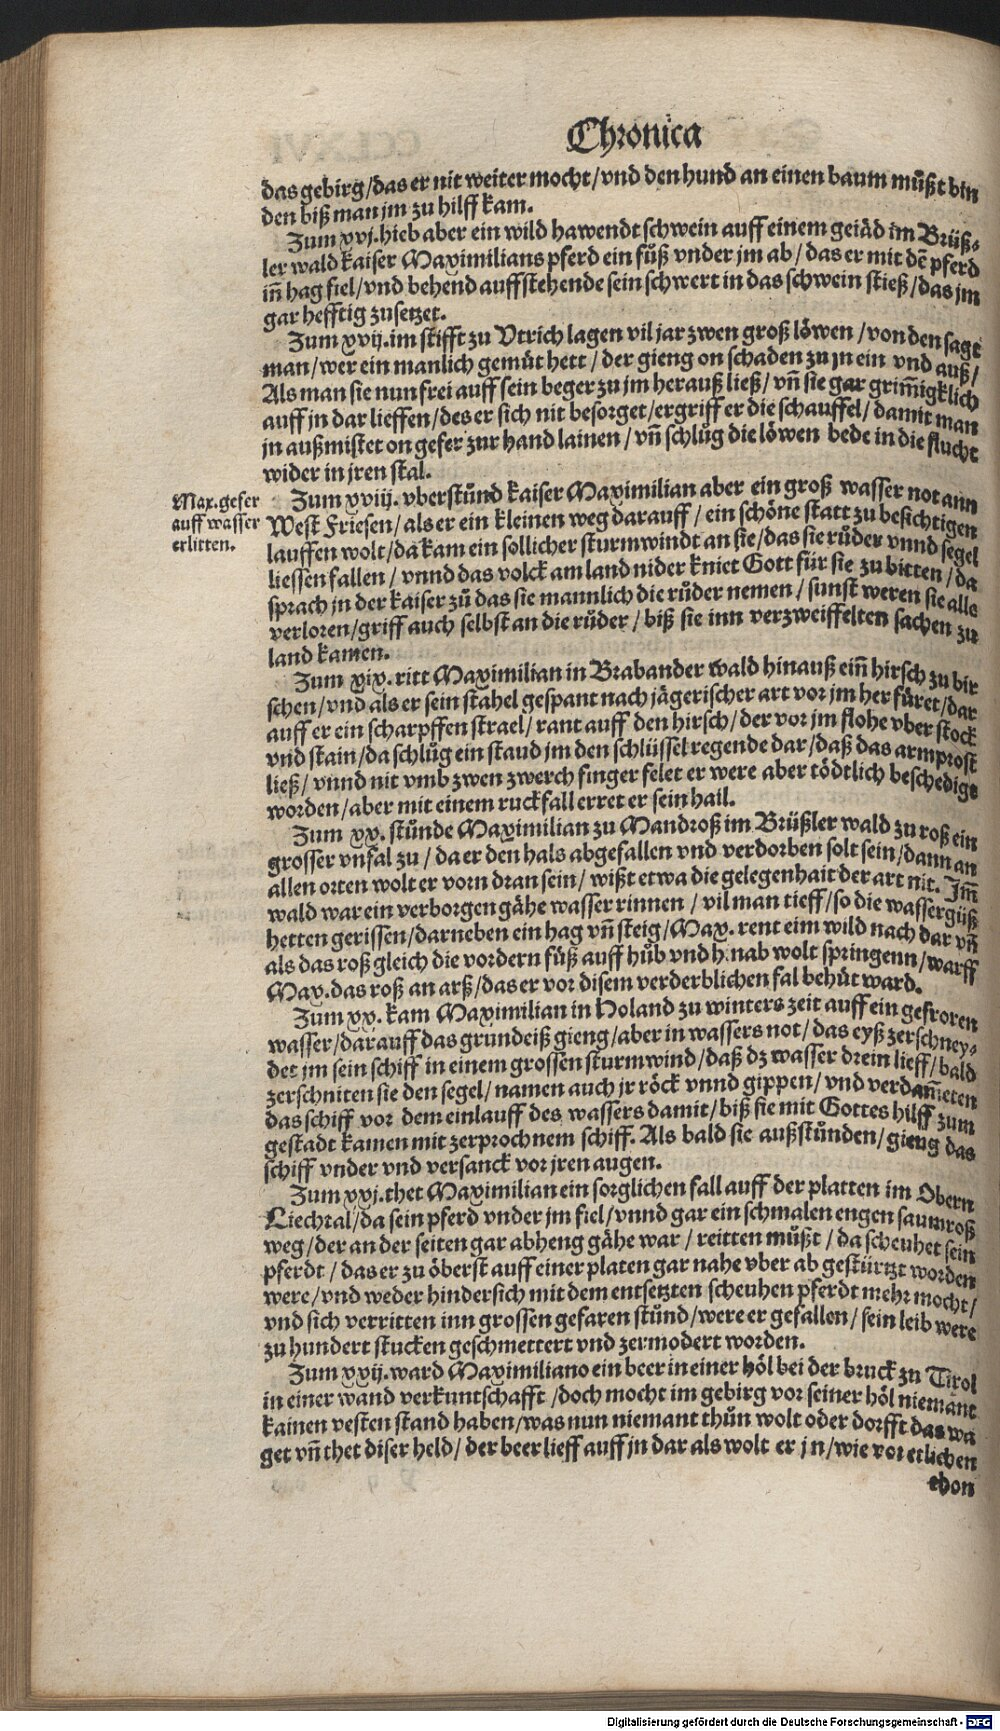 Chronica
das gebirg/das er nit weiter mocht/vnd den hund an einen baum můßt bin
den biß man jm zu hilff kam.
Zum xvj. hieb aber ein wild hawendt schwein auff einem geiäd im Brüß⸗
ler wald kaiser Maximilians pferd ein fůß vnder jm ab/das er mit dẽ pferd
iñ hag fiel/vnd behend auffstehende sein schwert in das schwein stieß/das jm
gar hefftig zusetzet.
Zum xvij. im stifft zu Vtrich lagen vil jar zwen groß löwen/von den sagt
man/wer ein manlich gemüt hett/der gieng on schaden zu jn ein vnd auß/
Als man sie nun frei auff sein beger zu jm herauß ließ/vñ sie gar grim̃igklich
auff jn dar lieffen/des er sich nit besorget/ergriff er die schauffel/damit man
jn außmistet on gefer zur hand lainen/vñ schlůg die löwen bede in die flucht
wider in jren stal.
Max. gefer
auff wasser
erlitten.
Zum xviij. vberstůnd kaiser Maximilian aber ein groß wasser not ann
West Friesen/als er ein kleinen weg darauff/ein schöne statt zu besichtigen
lauffen wolt/da kam ein sollicher sturmwindt an sie/das sie růder vnnd segel
liessen fallen/vnnd das volck am land nider kniet Gott für sie zu bitten/da
sprach jn der kaiser zů das sie mannlich die růder nemen/sunst weren sie alls
verloren/griff auch selbst an die růder/biß sie inn verzweiffelten sachen zu
land kamen.
Zum xix. ritt Maximilian in Brabander wald hinauß eiñ hirsch zu bir
schen/vnd als er sein stahel gespant nach jägerischer art vor jm her füret/dar
auff er ein scharpffen strael/rant auff den hirsch/der vor jm flohe vber stock
vnd stain/da schlůg ein staud jm den schlüssel regende dar/daß das armprost
ließ/vnnd nit vmb zwen zwerch finger felet er were aber tödtlich beschedigt
worden/aber mit einem ruckfall erret er sein hail.
Zum xx. stůnde Maximilian zu Mandroß im Brüßler wald zu roß ein
grosser vnfal zu/da er den hals abgefallen vnd verdorben solt sein/dann an
allen orten wolt er vorn dran sein/wißt etwa die gelegenhait der art nit. Im̃
wald war ein verborgen gähe wasser rinnen/vil man tieff/so die wassergüß
hetten gerissen/darneben ein hag vñ steig/Max. rent eim wild nach dar vñ
als das roß gleich die vordern füß auff hůb vnd hinab wolt springenn/warff
Max. das roß an arß/das er vor disem verderblichen fal behüt ward.
Zum xx. kam Maximilian in Holand zu winters zeit auff ein gefroren
wasser/darauff das grundeiß gieng/aber in wassers not/das eyß zerschney⸗
det jm sein schiff in einem grossen sturmwind/daß dz wasser drein lieff/bald
zerschniten sie den segel/namen auch jr röck vnnd gippen/vnd verdam̃eten
das schiff vor dem einlauff des wassers damit/biß sie mit Gottes hilff zum
gestadt kamen mit zerprochnem schiff. Als bald sie außstůnden/gieng das
schiff vnder vnd versanck vor jren augen.
Zum xxj. thet Maximilian ein sorglichen fall auff der platten im Obern
Liechtal/da sein pferd vnder jm fiel/vnnd gar ein schmalen engen saumroß
weg/der an der seiten gar abheng gähe war/reitten můßt/da scheuhet sein
pferdt/das er zu öberst auff einer platen gar nahe vber ab gestürtzt worden
were/vnd weder hindersich mit dem entsetzten scheuhen pferdt mehr mocht/
vnd sich verritten inn grossen gefaren stůnd/were er gefallen/sein leib were
zu hundert stucken geschmettert vnd zermodert worden.
Zum xxij. ward Maximiliano ein beer in einer höl bei der bruck zu Tirol
in einer wand verkuntschafft/doch mocht im gebirg vor seiner höl niemant
kainen vesten stand haben/was nun niemant thůn wolt oder dorfft das wa
get vñ thet diser held/der beer lieff auff jn dar als wolt er jn/wie vor etlichen
thon
Digitalisierung gefördert durch die Deutsche Forschungsgemeinschaft - DFG